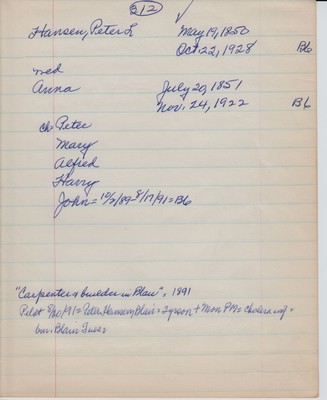 312
Hansen, Peter L May 19, 1850
Oct. 22, 1928 B6
med
Anna July 20, 1851
Nov. 24, 1922 B6
ch: Peter
Mary
Alfred
Harry
John = 10/2/89-8/17/91 = B6
"Carpenter & builder in Blair", 1891
Pilot 8/20/91 = Peter Hansen, Blair = 2 yr son + Mon PM = cholera inf =
bur. Blair Tues